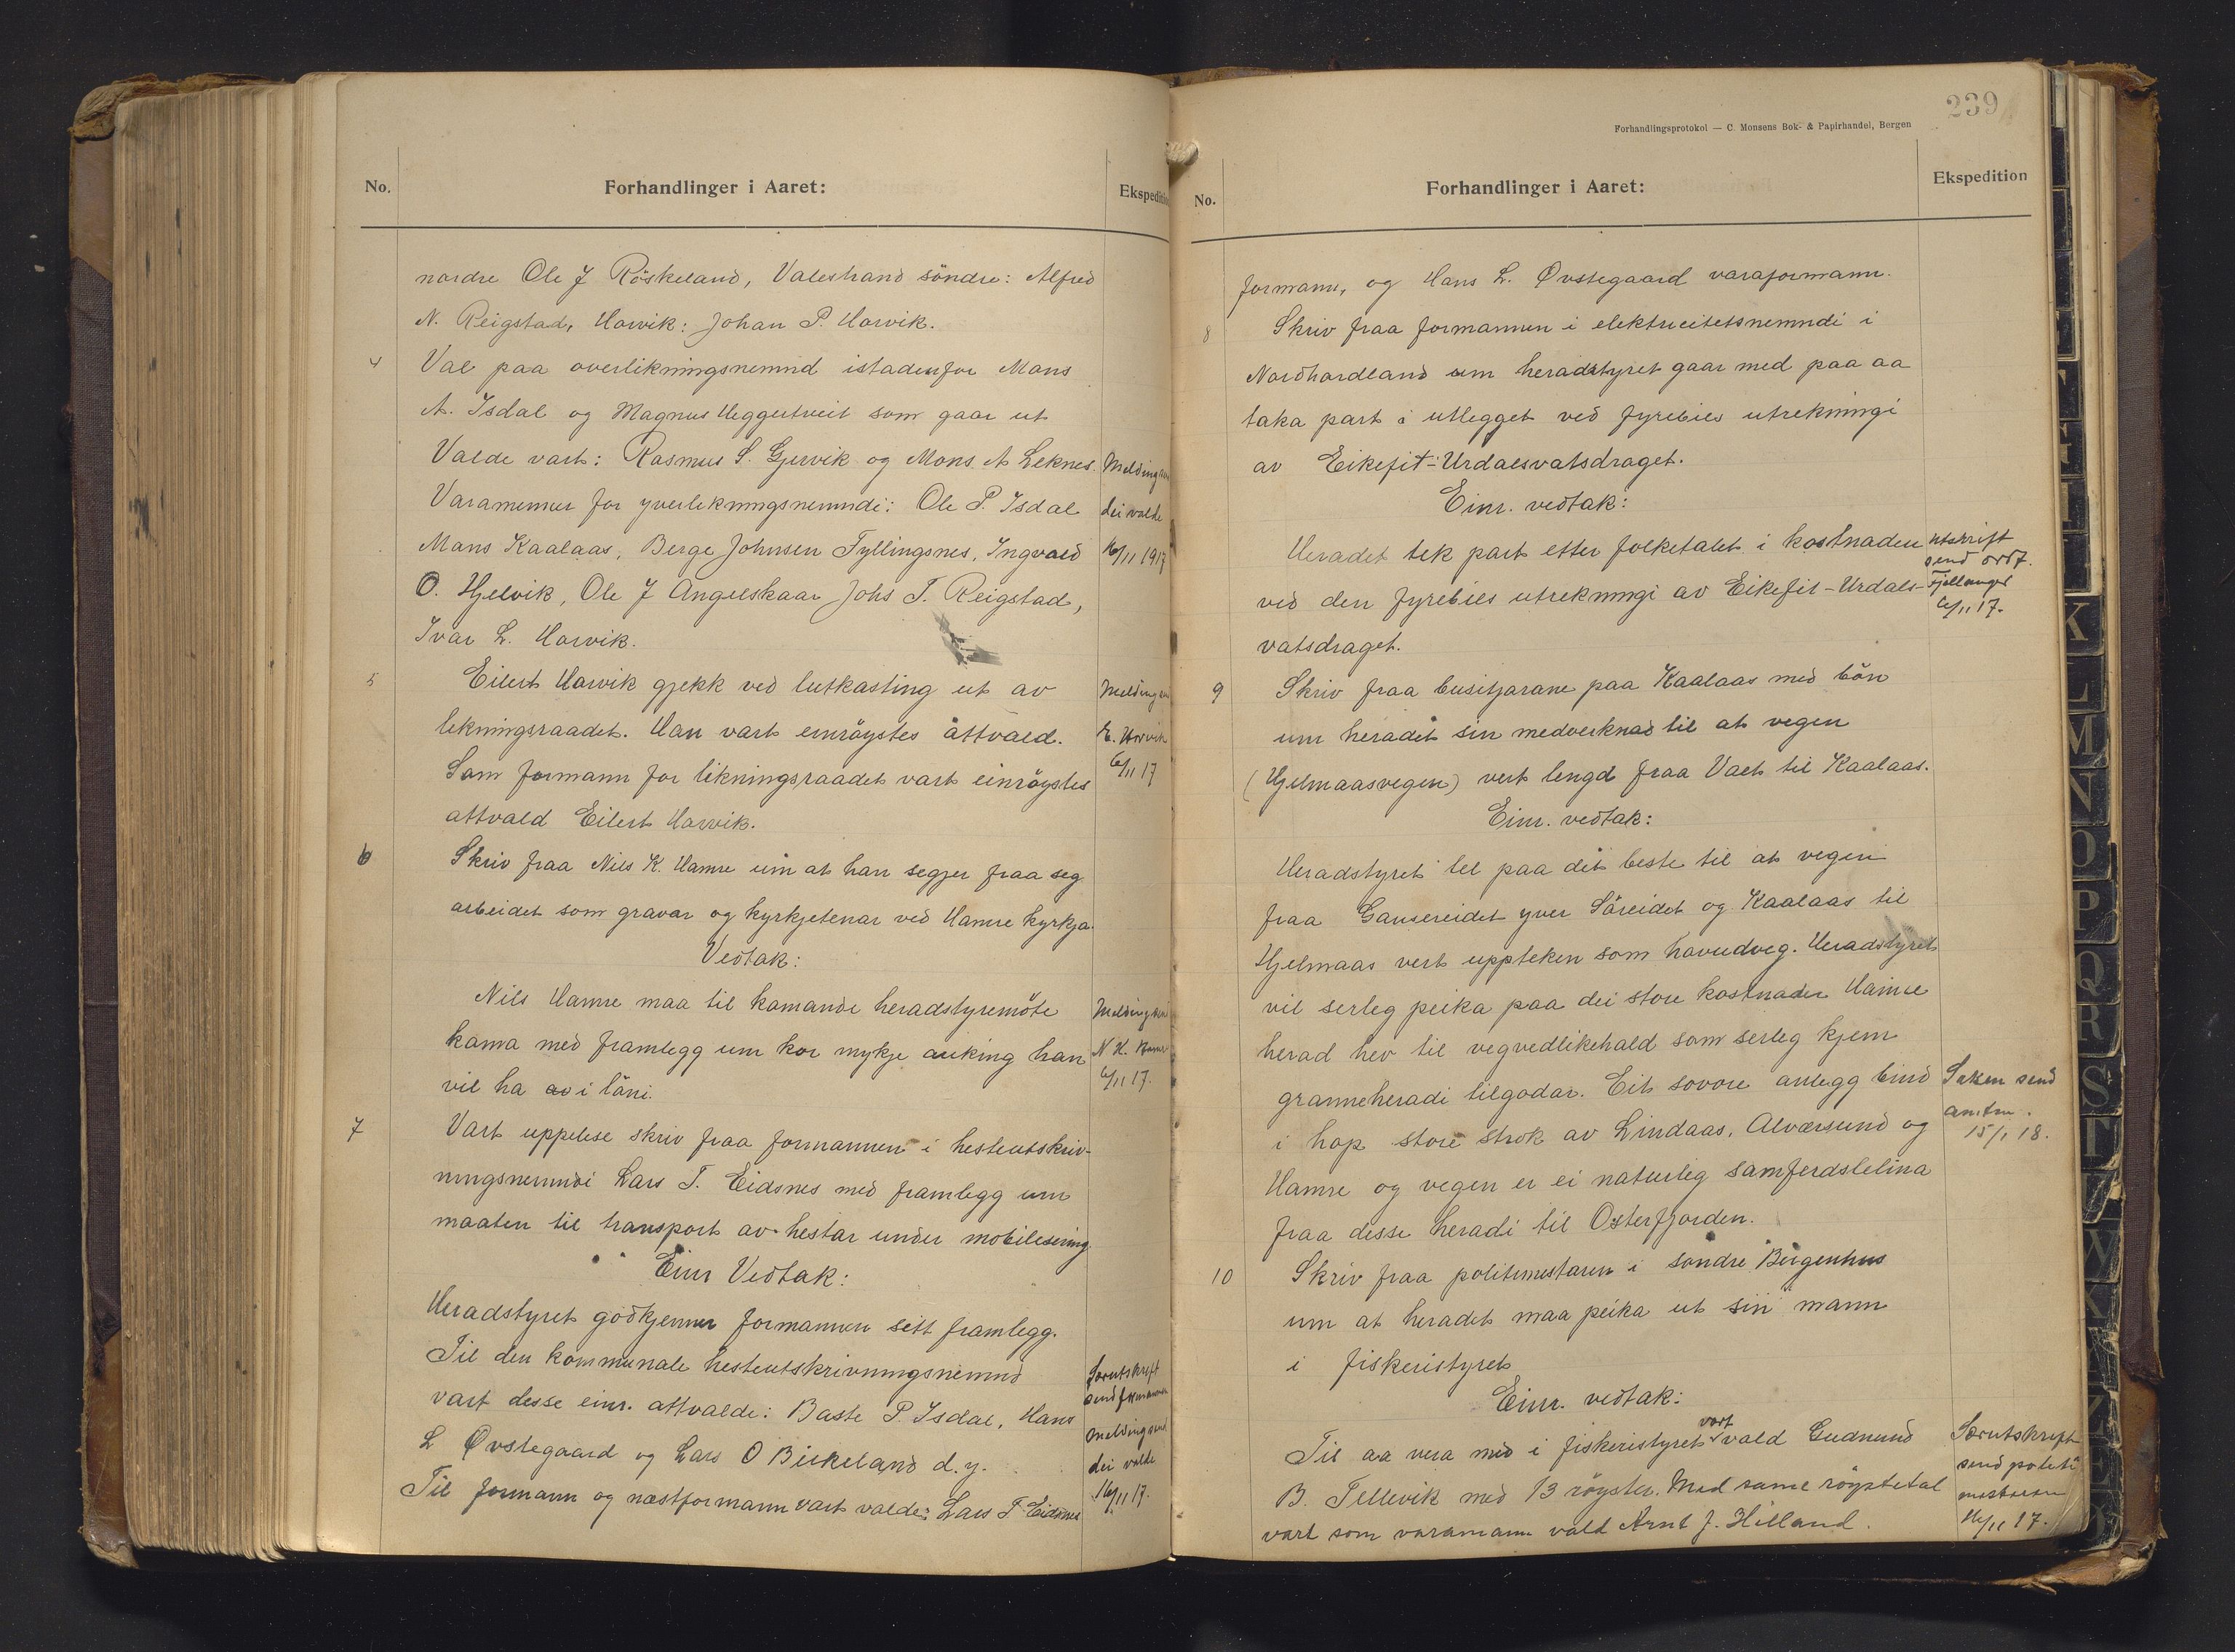 No.
Forhandlinger i Aaret:
Ekspedition
nordre Ole J Röskeland, Valestrand söndre: Alfred
N. Reigstad, Horvik: Johan P. Horvik.
4 Val paa overlikningsnemnd istadenfor Mons
A. Isdal og Magnus Heggertveit som gaar ut
Valde vart: Rasmus S. Gjervik og Mons A Leknes.
Varamenner for yverlikningsnemndi: Ole P. Isdal
Mons Kaalaas, Berge Johnsen Tyllingsnes, Ingvald
O. Hjelvik, Ole J Angelskaar Johs T. Reigstad,
Ivar L. Horvik.
Melding
dei valde
16/11 1917
5 Eilert Horvik gjekk ved lutkasting ut av
likningsraadet. Han vart einröystes åttvald.
Som formann for likningsraadet vart einröystes
attvald Eilert Horvik.
Melding
E. Horvik
6/11 17
6 Skriv fraa Nils K. Hamre um at han segjer fraa seg
arbeidet som gravar og kyrkjetenar ved Hamre kyrkja.
Vedtak:
Nils Hamre maa til komande heradstyremöte
koma med framlegg um kor mykje auking han
vil ha av i löni.
Melding send
N K. Hamre
6/11 17.
7 Vart upplese skriv fraa formannen i hesteutskriv-
ningsnemndi Lars T. Eidsnes med framlegg um
maaten til transport av hestar under mobilisering
Einr Vedtak:
Heradstyret godkjenner formannen sitt framlegg.
Til den kommunale hesteutskrivningsnemnd
vart desse einr. attvalde: Baste P. Isdal, Hans
L Øvstegaard og Lars O Birkeland d.y.
Til formann og næstformann vart valde: Lars T. Eidsnes
Særutskrift
send formannen
Melding send
dei valde
16/11 17.
239
Forhandlingsprotokol — C. Monsens Bok- & Papirhandel, Bergen
No.
Forhandlinger i Aaret:
Ekspedition
formann, og Hans L. Øvstegaard varaformann.
8 Skriv fraa formannen i elektricitetsnemndi i
Nordhordland um heradstyret gaar med paa aa
taka part i utlegget ved fyrebils utrekningi
av Eikefit-Urdalsvatsdraget.
Einr. vedtak:
Heradet tek part etter folketalet i kostnaden
ved den fyrebils utrekningi av Eikefit-Urdals-
vatsdraget.
Utskrift
send ordf.
Fjellanger
6/11 17.
9 Skriv fraa busitjarane paa Kaalaas med bön
um heradet sin medverknad til at vegen
(Hjelmaasvegen) vert lengd fraa Vaet til Kaalaas.
Einr. vedtak:
Heradstyret tel paa det beste til at vegen
fraa Gausereidet yver Söreidet og Kaalaas til
Hjelmaas vert uppteken som hovudveg. Heradstyret
vil serleg peika paa dei store kostnader Hamre
herad hev til vegvedlikehald som serleg kjem
granneheradi tilgodar. Eit sovore anlegg bind
i hop store strök av Lindaas, Alværsund og
Hamre og vegen er ei naturleg samferdslelina
fraa desse heradi til Osterfjorden.
Saken send
amtm.
15/1 18.
10 Skriv fraa politimestaren i söndre Bergenhus
um at heradet maa peika ut sin mann
i fiskeristyret
Einr. vedtak:
Til aa vera med i fiskeristyret vart vald Gudmund
B. Tellevik med 13 röyster. Med same röystetal
vart som varamann vald Arnt J. Hilland.
Særutskrift
send politi
mestaren
16/11 17.
K
L
M
N
O
P
Q
R
S
T